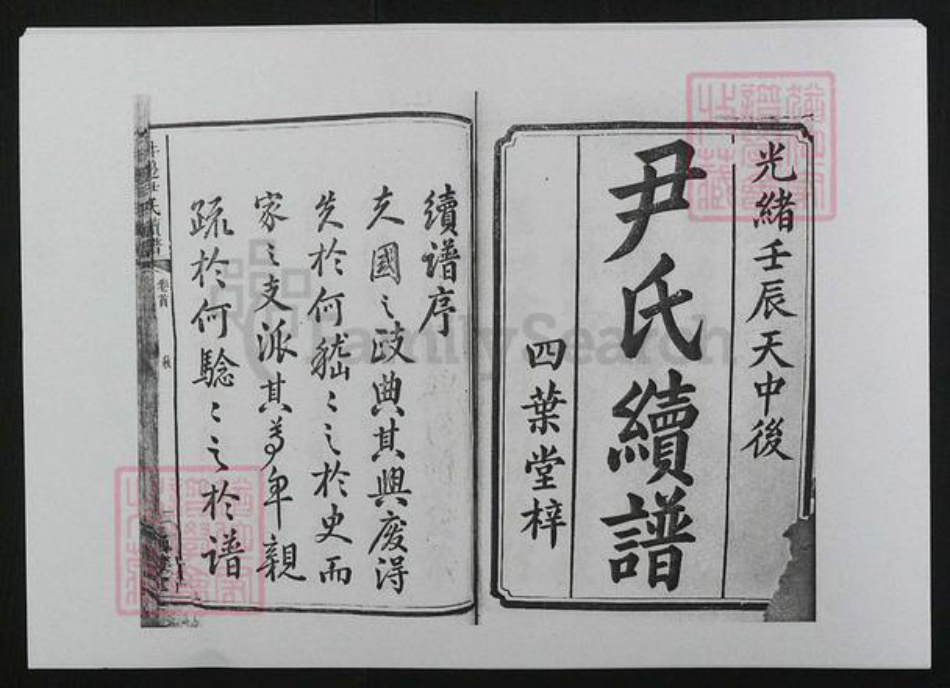 光緒壬辰天中後
尹氏續譜
四葉堂梓
續譜序
夫國之政典其興廢得
失於何嵇嵇之於史而
家之支派其尊卑親
疏於何騐騐之於譜
尹氏續譜
卷首
FamilySearch